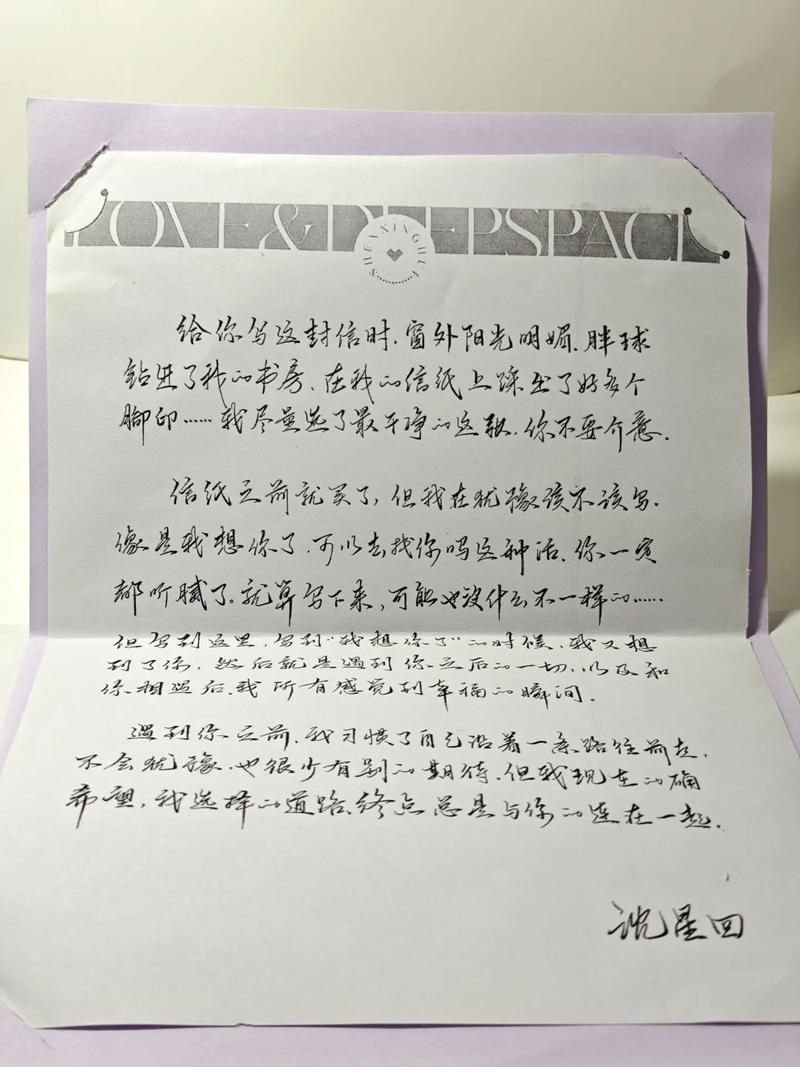 LOVE&DEEPSPACE
SHENXINGHUI
给你写这封信时,窗外阳光明媚,胖球
钻进了我的书房,在我的信纸上踩出了好多个
脚印……我尽量选了最干净的这张,你不要介意.
信纸之前就买了,但我在犹豫该不该写.
像是我想你了,可以去找你吗这种话,你一定
都听腻了。就算写下来,可能也没什么不一样的……
但写到这里,写到“我想你了”的时候,我又想
到了你,然后就是遇到你之后的一切,以及和
你相遇后,我所有感觉到幸福的瞬间.
遇到你之前,我习惯了自己沿着一条路往前走,
不会犹豫,也很少有别的期待,但我现在的确
希望,我选择的道路,终点总是与你的连在一起.
沈星回